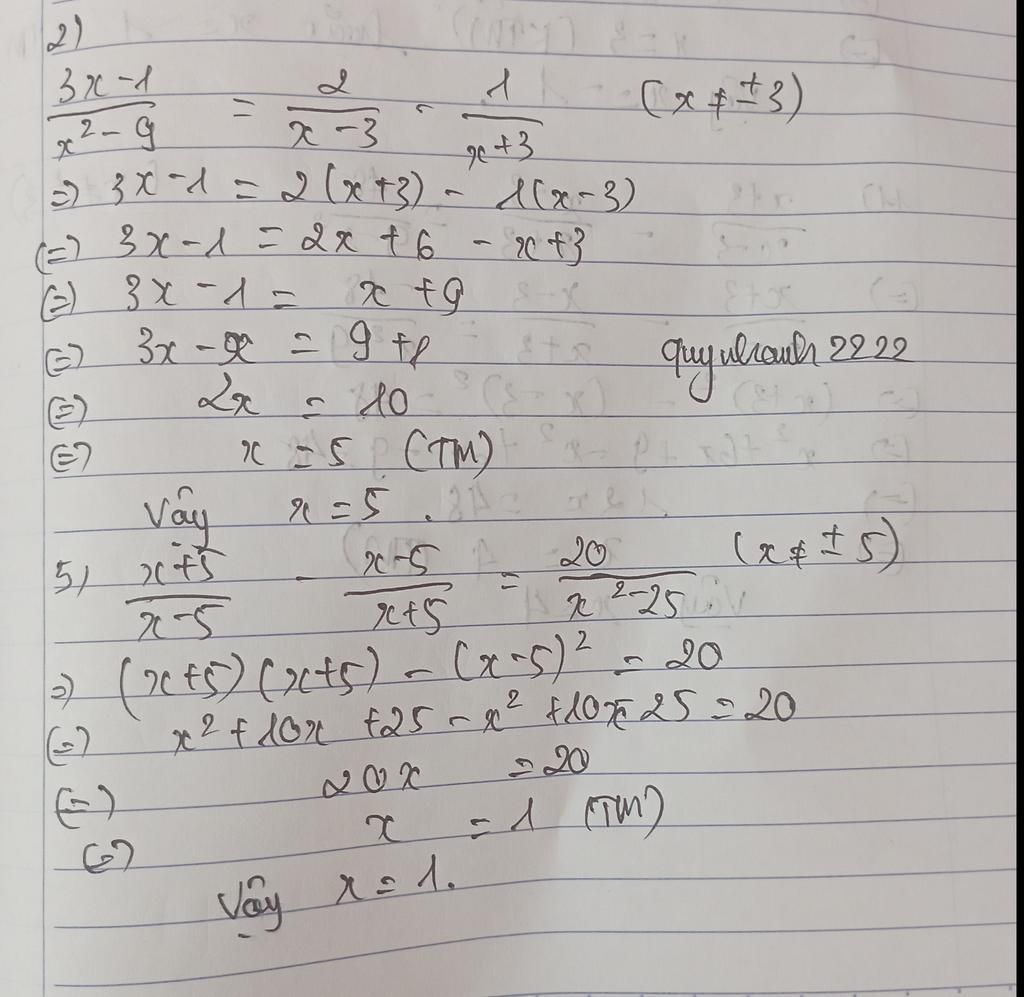 2)
\frac{3x-1}{x^2-9} = \frac{2}{x-3} - \frac{1}{x+3} (x ≠ ±3)
=> 3x-1 = 2(x+3) - 1(x-3)
(=) 3x-1 = 2x+6 - x+3
(=) 3x-1 = x+9
(=) 3x-x = 9+1
quynhanh 2222
(=) 2x = 10
(=) x = 5 (TM)
Vậy x = 5.
5) \frac{x+5}{x-5} - \frac{x-5}{x+5} = \frac{20}{x^2-25} (x ≠ ±5)
=> (x+5)(x+5) - (x-5)^2 = 20
(=) x^2+10x+25-x^2+10x-25 = 20
(=) 20x = 20
(=) x = 1 (TM)
Vậy x = 1.